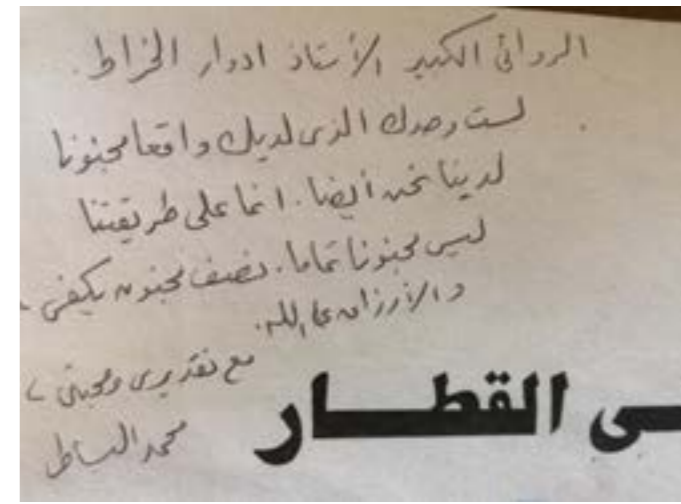 الروائى الكبير الأستاذ ادوار الخراط.
لست وحدك الذى لديك واقعا مجنونا
لدينا نحن أيضا. انما على طريقتنا
ليس مجنونا تماما. نصف مجنون يكفى
والأرزاق على الله.
مع تقديرى ومحبتى
محمد البساطى
ـى القطــار